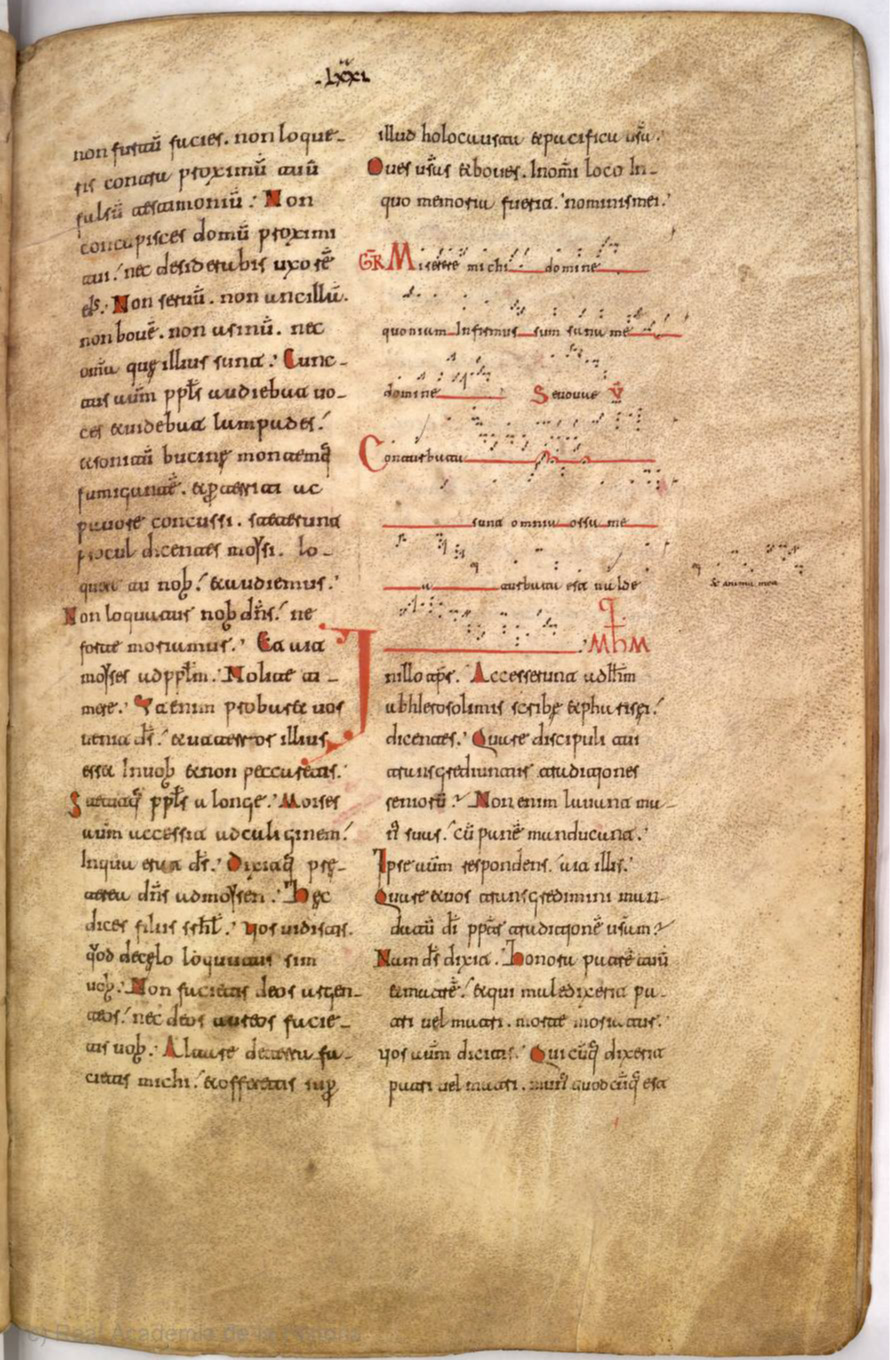 lxxi
non furtū facies. non loque
ris contra proximū tuū
falsū testimoniū. Non
concupisces domū proximi
tui. nec desiderabis uxorē
ei᷒. Non seruū. non ancillā.
non bouē. non asinū. nec
om̄ia quę illius sunt. Cunc
tus autm̄ ppl̄s audiebat uo
ces et uidebat lampades.
et sonitū bucinę montemq̄
fumigantē. et ꝑterriti ac
pauore concussi. steterunt
procul dicentes moysi. lo
quere tu nob̄. et audiemus.
Non loquatur nob̄ dn̄s. ne
forte moriamur. Et ait
moyses ad ppl̄m. Nolite ti
mere. Vt enim probaret uos
uenit ds̄. et ut terror illius
esset In uob̄ et non peccaretis.
Stetitq̄ ppl̄s a longe. Moises
autm̄ accessit ad caliginem.
In qua erat ds̄. Dixitq̄ prę
terea dn̄s ad moysen. Hęc
dices filiis isrl̄. vos uidistis.
q̄od de cęlo loquutus sim
uob̄. Non facietis deos argen
teos. nec deos aureos facie
tis uob̄. Altare de terra fa
cietis michi. et offeretis sup̄
illud holocausta et pacifica ur̄a.
Oues ur̄as et boues. In om̄i loco In
quo memoria fuerit. nominis mei.
GR Miserere michi domine
quoniam Infirmus sum sana me
domine Seuouae V̄
Conturbata
sunt omnia ossa me
a turbata est ualde
et anima mea
MħM
In illo tp̄r. Accesserunt ad Ihm̄
ab hierosolimis scribę et pharisęi.
dicentes. Quare discipuli tui
transgrediuntur traditiones
seniorū. Non enim lauant ma
n̄ suas. cū panē manducant.
Ipse autm̄ respondens. ait illis.
Quare et uos transgredimini man
datū di ppt̄er traditionē ur̄am.
Nam ds̄ dixit. Honora patrē tuū
et matrē. et qui maledixerit pa
tri uel matri. morte moriatur.
vos autm̄ dicitis. Quicūq̄ dixerit
patri uel matri. mun̄ quodcūq̄ est